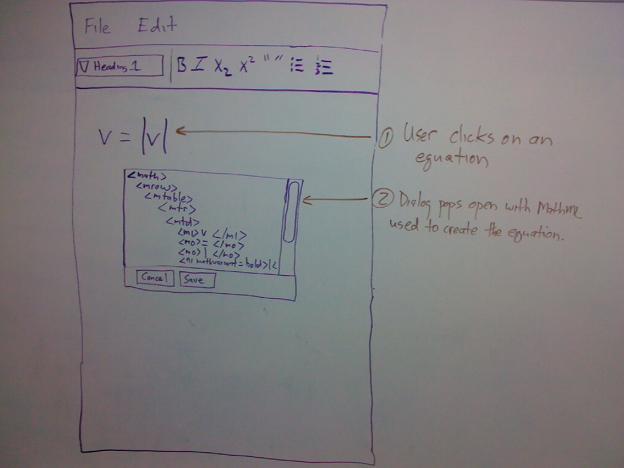 File Edit
▽ Heading 1 B I X₂ X² " " 
V = |V|
① User clicks on an
equation
<math>
<mrow>
<mtable>
<mtr>
<mtd>
<mi> V </mi>
<mo> = </mo>
<mo> | </mo>
<mi mathvariant=bold>|<
Cancel Save
② Dialog pops open with MathML
used to create the equation.